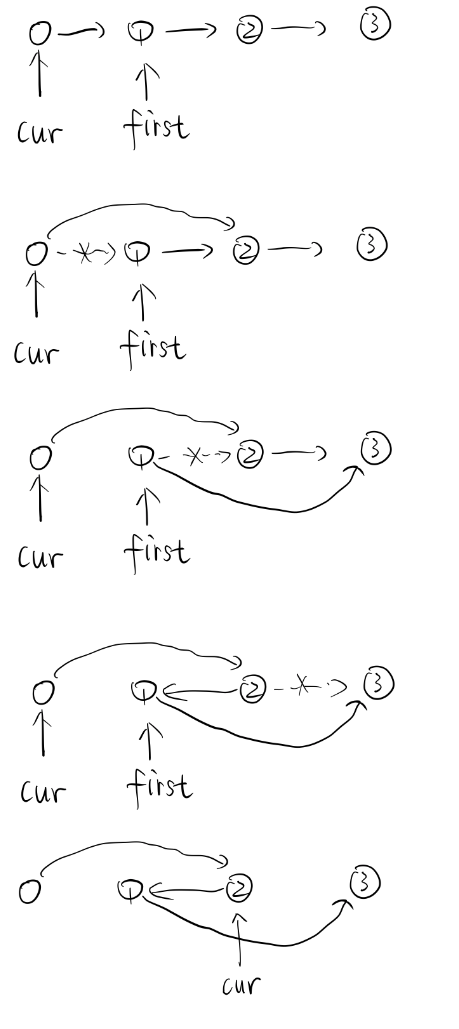 ① ② ③
cur first
① ② ③
cur first
① ② ③
cur first
① ② ③
cur first
① ② ③
cur